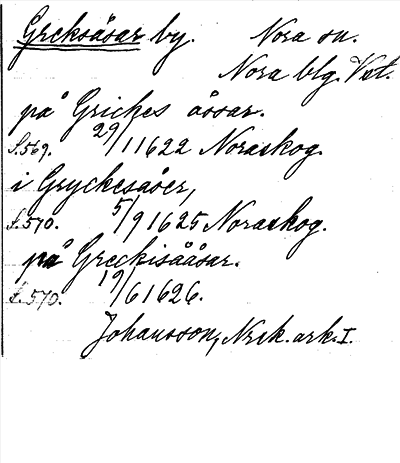 Greksåsar by. Nora sn.
Nora blg. Vstm.
på Grickes åssar.
S. 569. 29/11 1622 Noraskog.
i Gryckesåser,
S. 570. 5/9 1625 Noraskog.
på Greckisååsar.
S. 570. 19/6 1626.
Johansson, Norsk. ark. I.